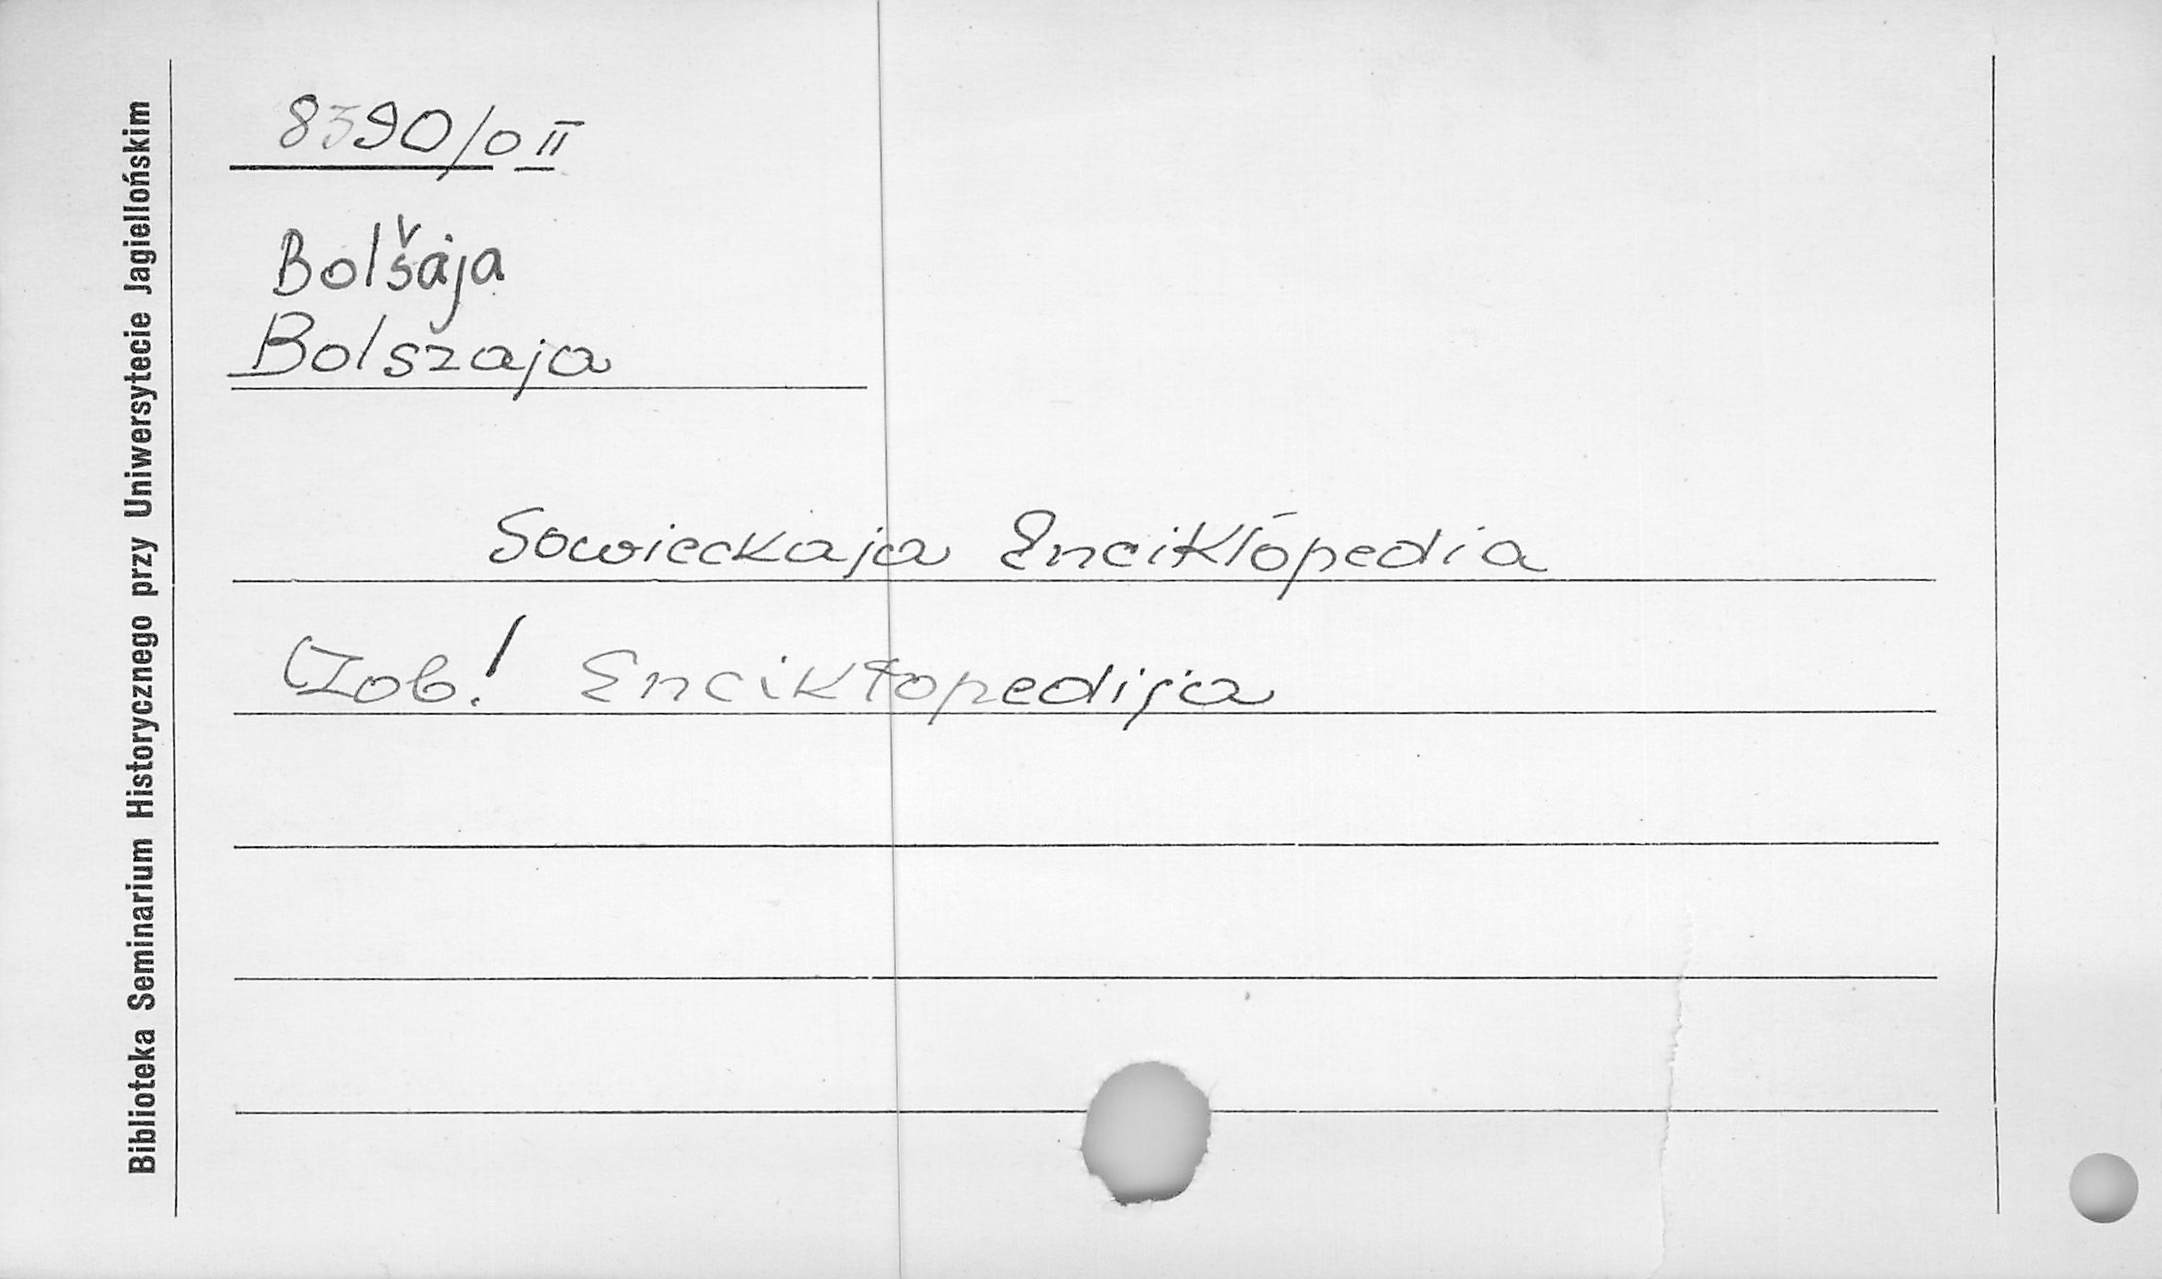 Biblioteka Seminarium Historycznego przy Uniwersytecie Jagiellońskim
8390/o II
Bolšaja
Bolszaja
Sowieckaja Encikłopedia
Zob.! Encikłopedija